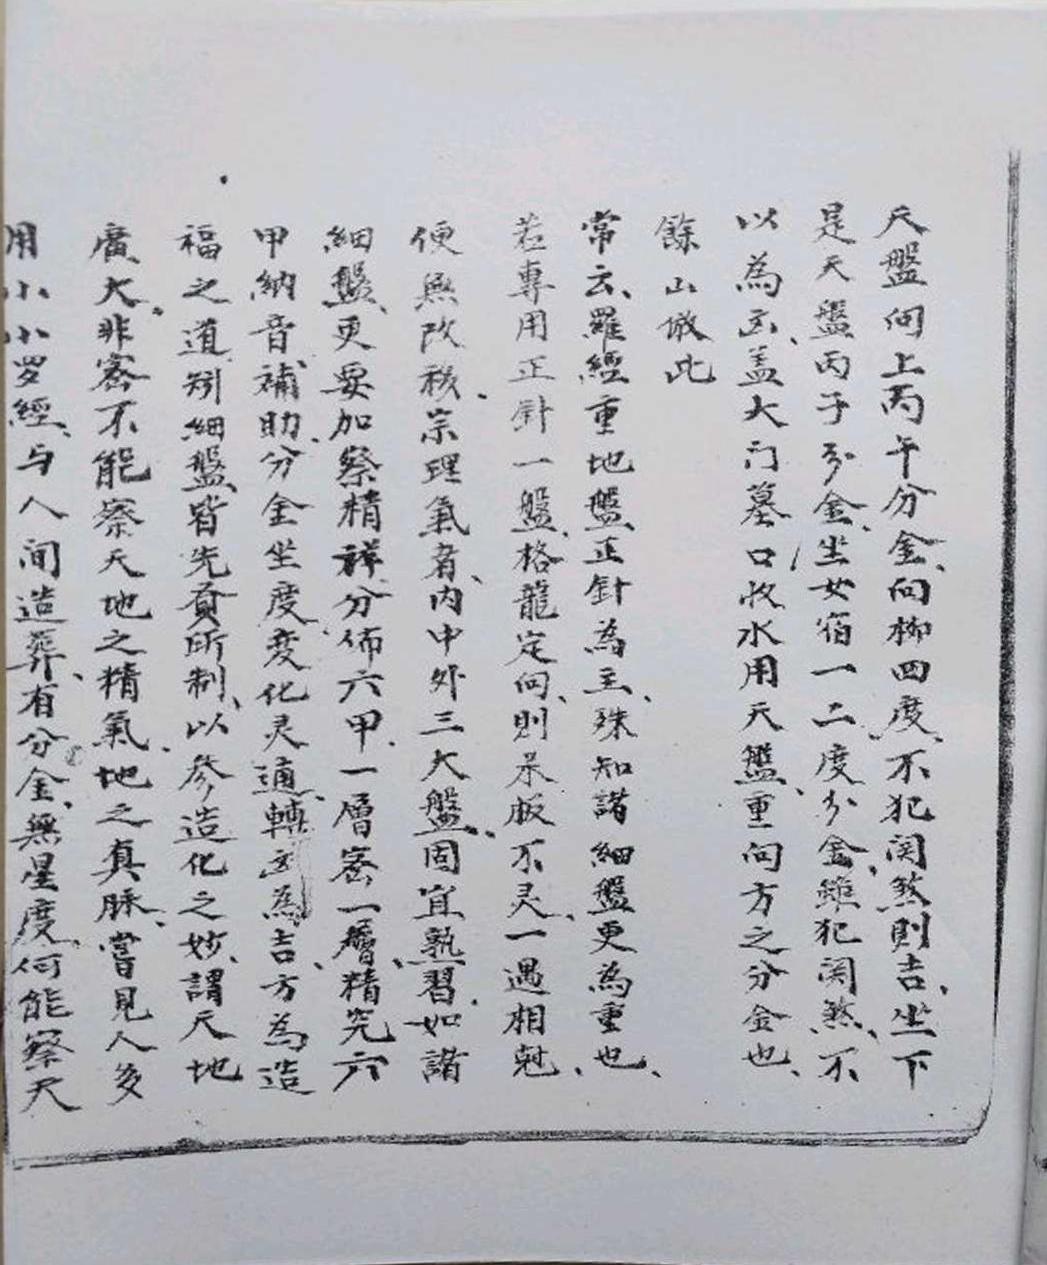 天盤向上丙午分金、向柳四度、不犯関煞則吉、坐下
是天盤丙子分金、坐女宿一二度分金、雖犯関煞、不
以為凶、盖大门墓口收水用天盤、重向方之分金也、
餘山倣此
常云、羅經重地盤正針為主、殊知諸細盤更為重也、
若專用正針一盤、格龍定向、則呆板不灵、一遇相尅、
便無改移、宗理氣者、内中外三大盤、固宜熟習、如諸
細盤、更要加察精祥、分佈六甲、一層密一層、精究六
甲納音、補助、分金坐度、变化灵通、轉凶為吉、方為造
福之道、矧細盤皆先賢所制、以參造化之妙、謂天地
廣大、非密不能察天地之精氣、地之真脉、嘗見人多
用小小罗經、与人间造葬、有分金、無星度、何能察天